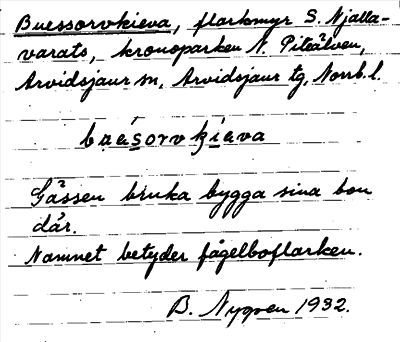 Buessorvkieva, flarkmyr S. Njalla-
varats, kronoparken N. Piteälven,
Arvidsjaur sn, Arvidsjaur tg, Norrb. l.
baésorvkieva
Gässen bruka bygga sina bon
där.
Namnet betyder fågelboflarken.
B. Nyqven 1932.